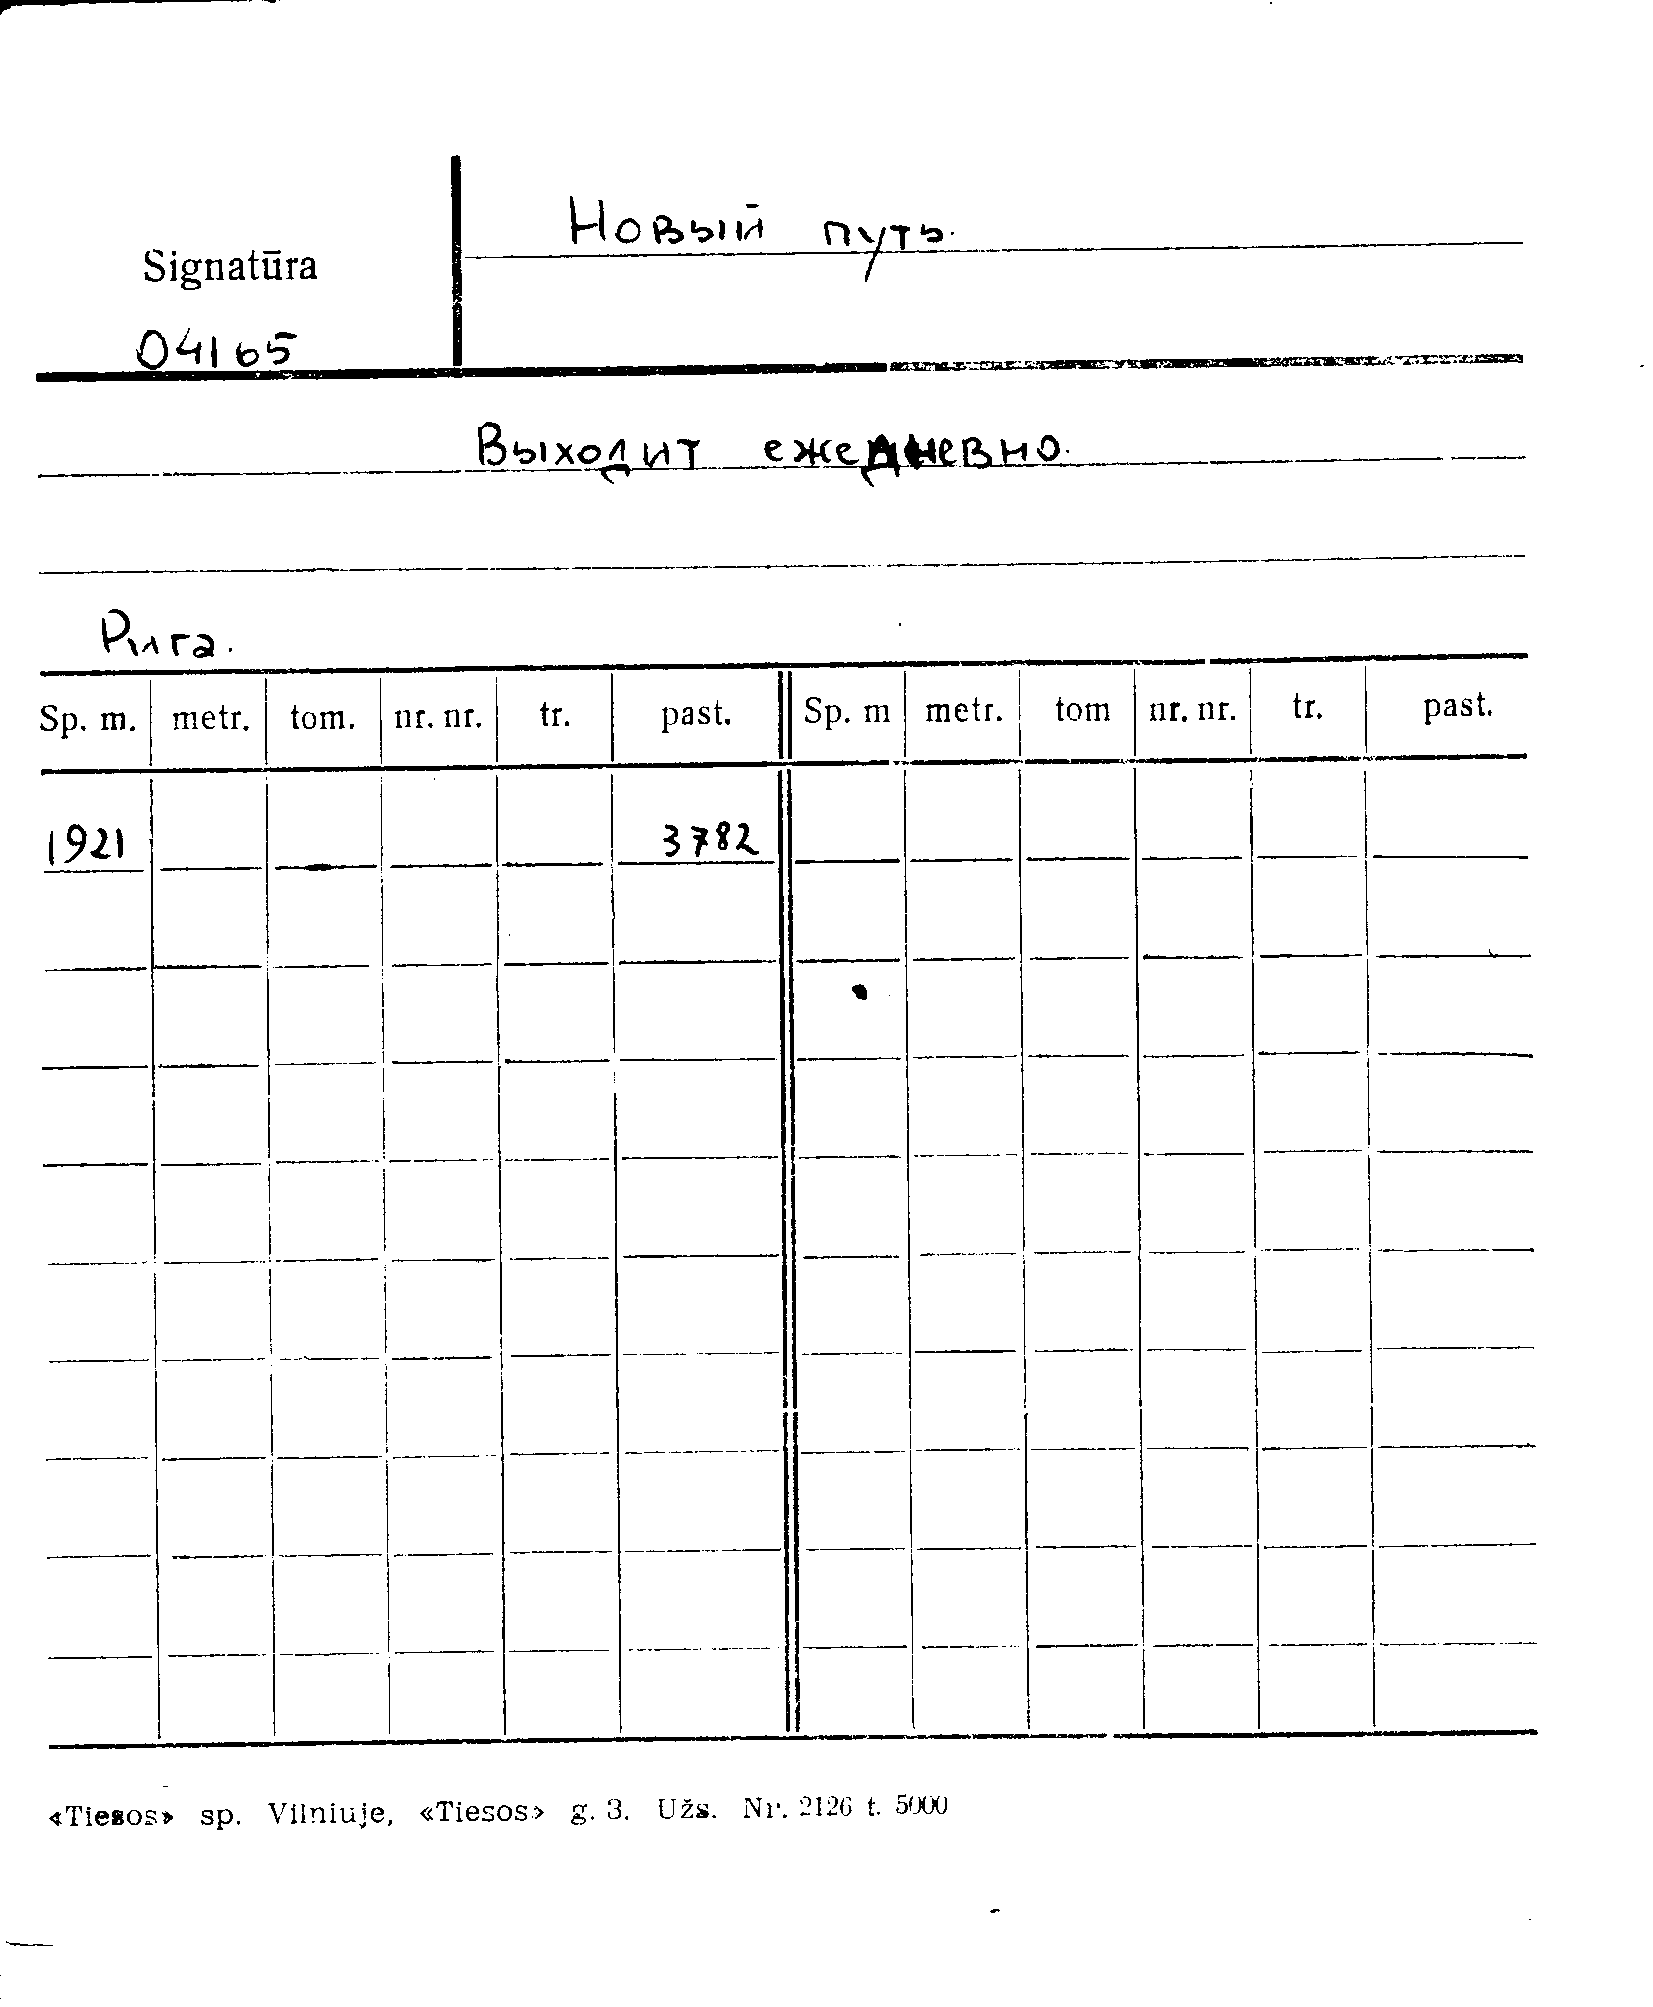 Новый путь.
Signatūra
04165
Выходит ежедневно.
Рига.
Sp. m. metr. tom. nr. nr. tr. past. Sp. m metr. tom nr. nr. tr. past.
1921 3782
«Tiesos» sp. Vilniuje, «Tiesos» g. 3. Užs. Nr. 2126 t. 5000